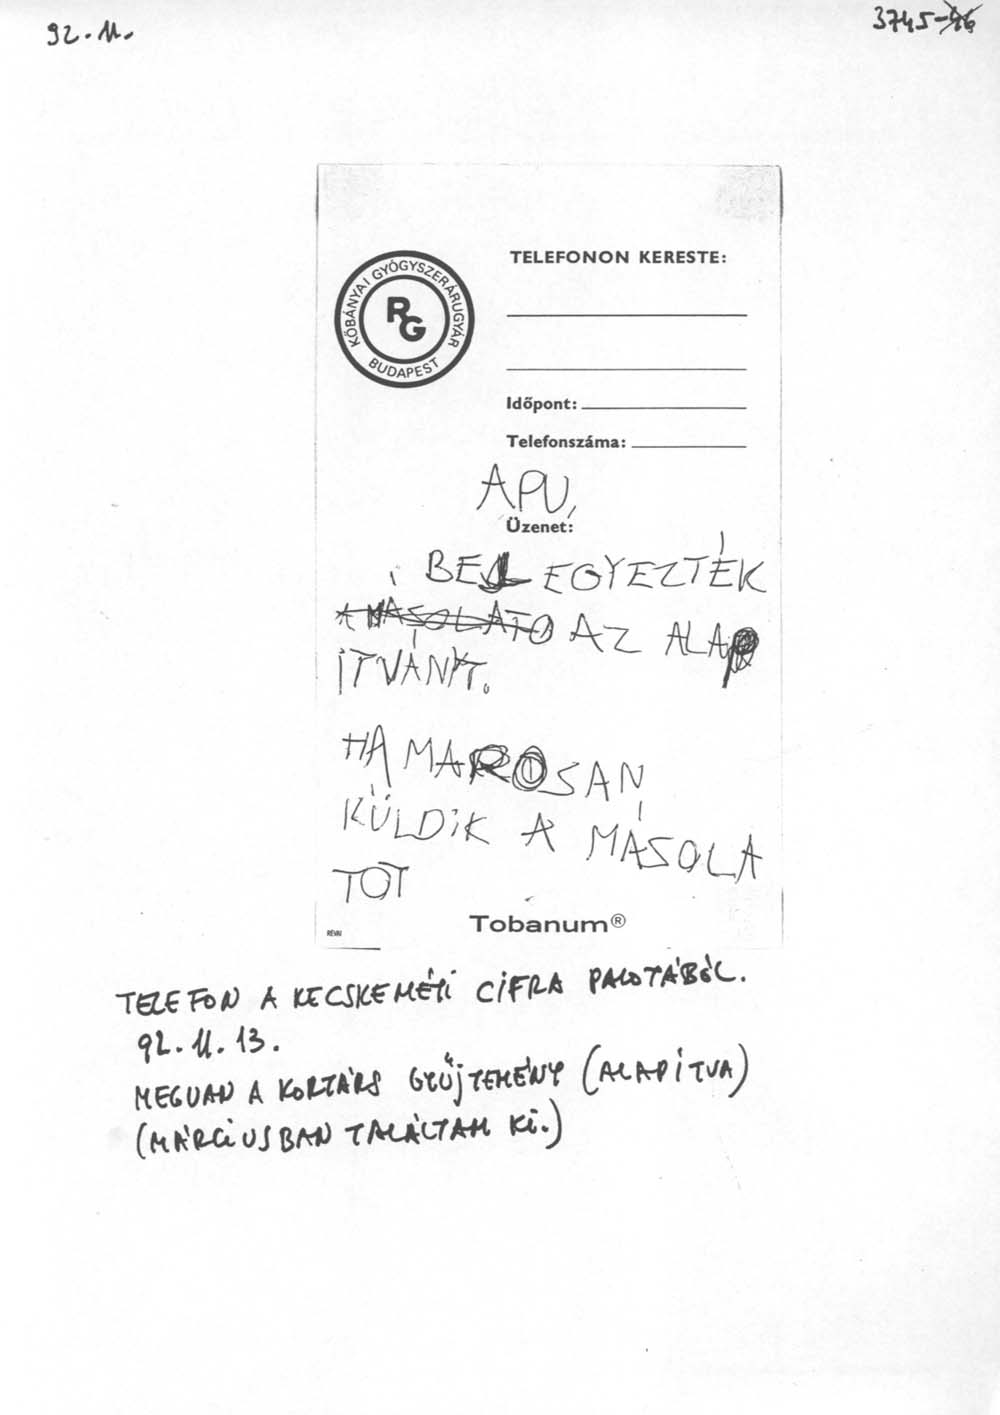 92.11.
3745-
KŐBÁNYAI GYÓGYSZERÁRUGYÁR
RG
BUDAPEST
TELEFONON KERESTE:
Időpont:
Telefonszáma:
APU,
Üzenet:
BEJEGYEZTÉK
A MÁSOLATO AZ ALAP
ÍTVÁNYT.
HAMAROSAN
KÜLDIK A MÁSOLA
TOT
RÉVAI
Tobanum®
TELEFON A KECSKEMÉTI CIFRA PALOTÁBÓL.
92.11.13.
MEGVAN A KORTÁRS GYŰJTEMÉNY (ALAPÍTVA)
(MÁRCIUSBAN TALÁLTAM KI.)